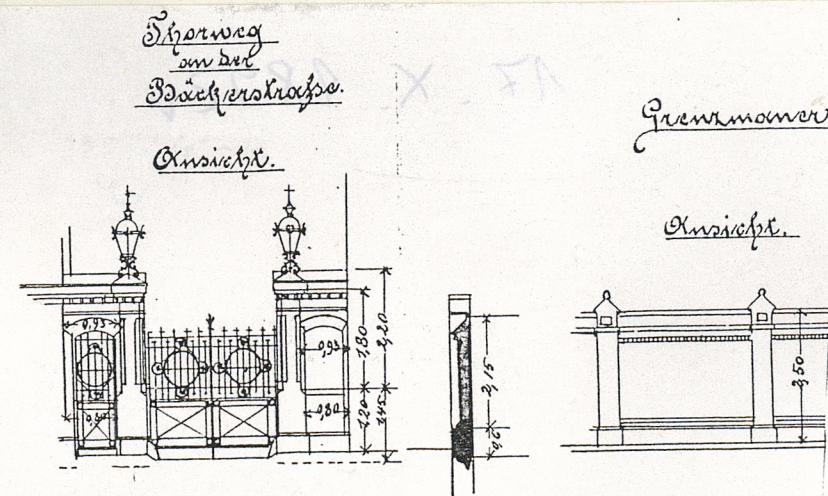 Thorweg
an der
Bäckerstraße.
Ansicht.
Grenzmauer
Ansicht.
0,93
0,93
0,80
1,80
2,20
1,20
1,45
2,15
2,50
17. X.